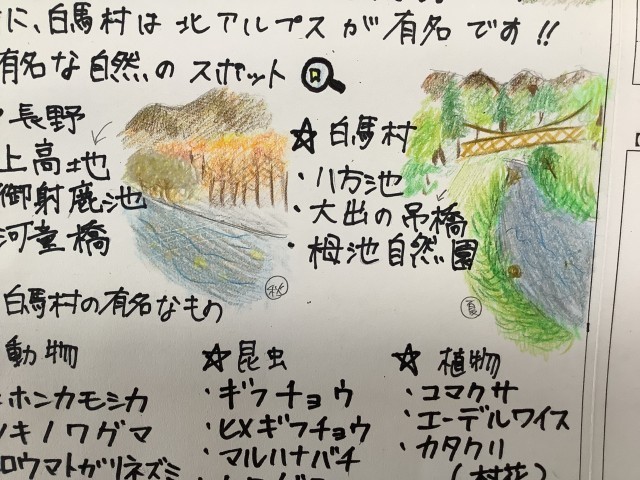 に、白馬村は北アルプスが有名です!!
有名な自然のスポット
長野
上高地
御射鹿池
河童橋
秋
☆白馬村
・八方池
・大出の吊橋
・栂池自然園
夏
白馬村の有名なもの
動物
ホンカモシカ
ツキノワグマ
ロウマトガリネズミ
☆昆虫
・ギフチョウ
・ヒメギフチョウ
・マルハナバチ
☆植物
・コマクサ
・エーデルワイス
・カタクリ
(村花)